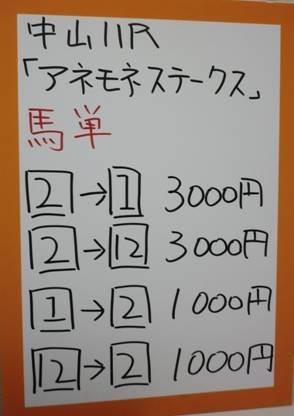 中山11R
「アネモネステークス」
馬単
2→1 3000円
2→12 3000円
1→2 1000円
12→2 1000円